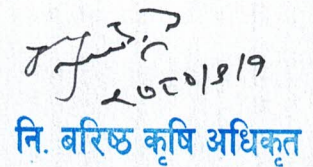 २०८०।९।९
नि. बरिष्ठ कृषि अधिकृत